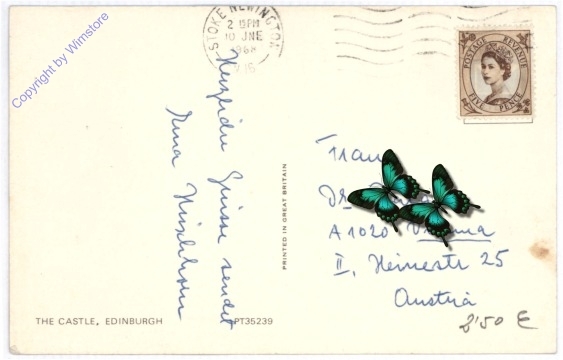 Copyright by Wimstore
STOKE NEWINGTON
2 15PM
10 JNE
1968
N.16
POSTAGE REVENUE
FIVE PENCE
Herzliche Grüsse sendet
PRINTED IN GREAT BRITAIN
Frau
Dr.
A 1020 Vienna
II, Heinestr 25
Austria
THE CASTLE, EDINBURGH
PT35239
8'50 €